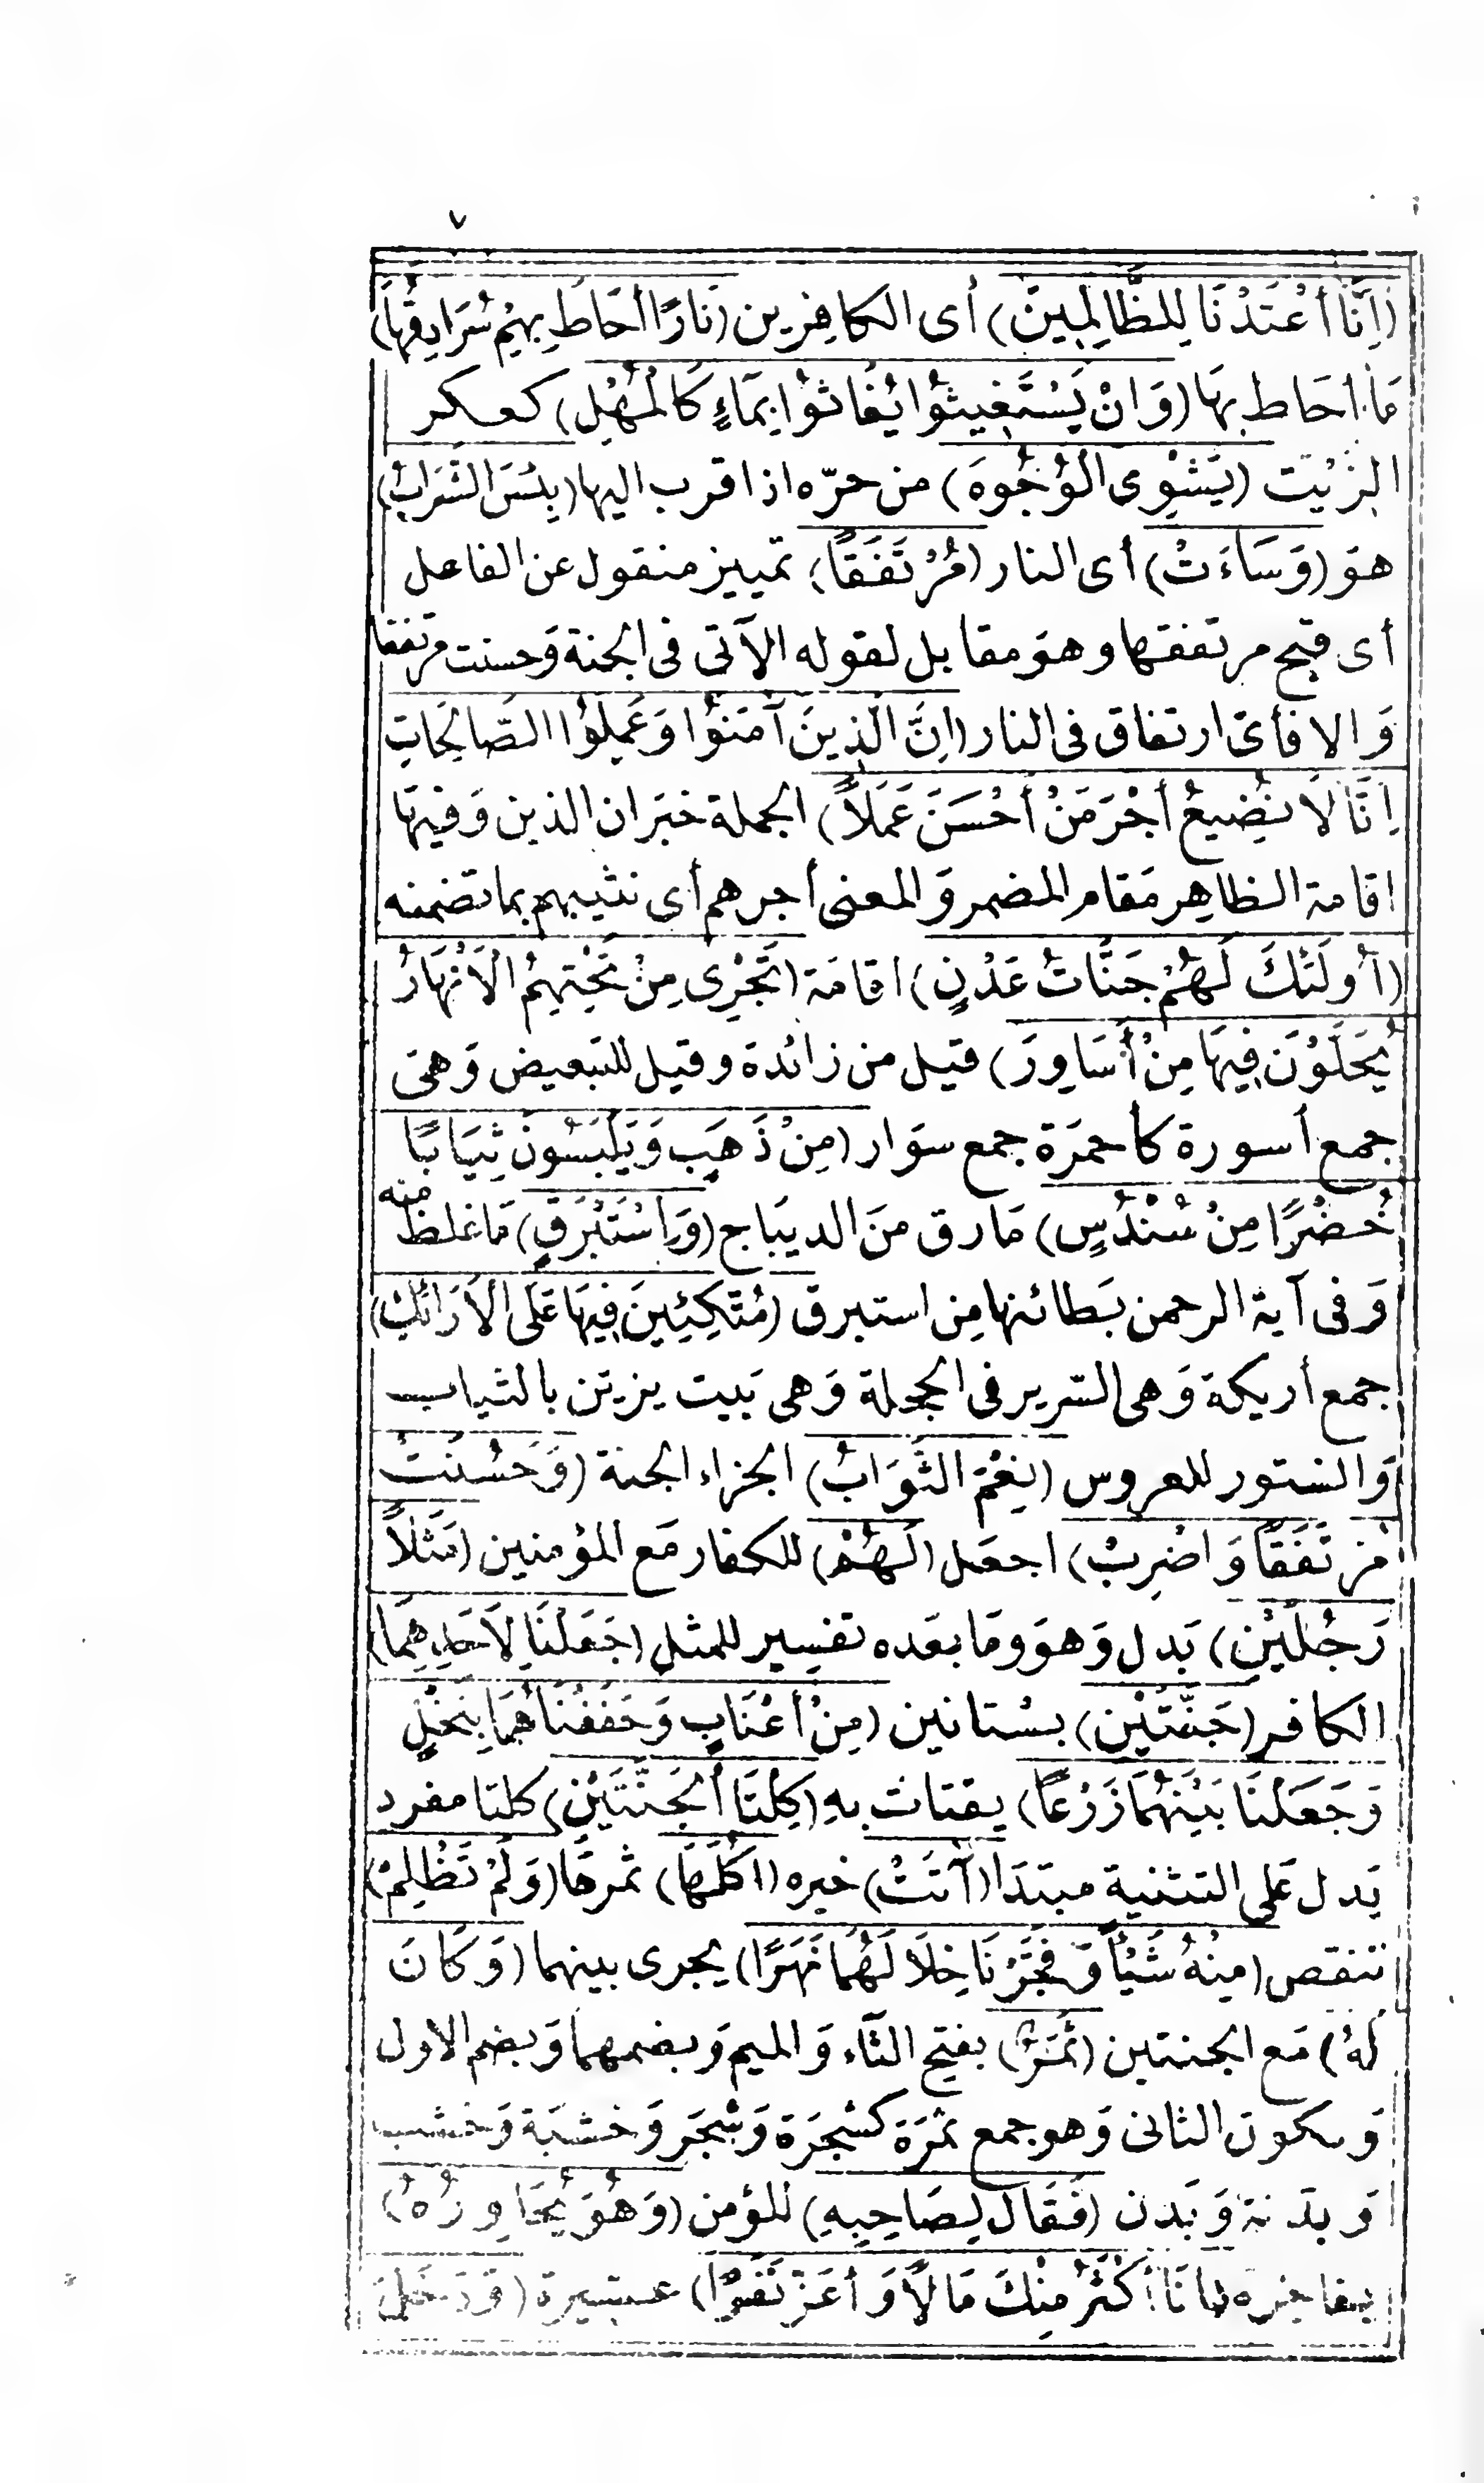 ٧
(اِنَّا أَعْتَدْنَا لِلظَّالِمِينَ) أى الكافِرين (نَارًا أَحَاطَ بِهِمْ سُرَادِقُهَا)
مَا احَاط بهَا (وَانْ يَسْتَغِيثُوْا يُغَاثوْا بِمَاءٍ كَالْمُهْلِ) كعكر
الزيْت (يَشْوِى الْوُجُوهَ) من حرّه اذا قرب اليها (بِئسَ الشَّرَابُ)
هوَ (وَسَاءَتْ) أى النار (مُرْتَفَقًا) تمييز منقول عن الفاعل
أى قبح مرتفقها وهوَ مقابل لقوله الآتى فى الجنة وَحسنت مرتفقا
وَالا فأىّ ارتفاق فى النار (اِنَّ الَّذِينَ آمَنُوْا وَعَمِلُوْا الصَّالِحَاتِ
اِنَّا لاَ نضِيعُ أَجْرَ مَنْ أَحْسَنَ عَمَلاً) الجملة خبَر ان الذين وَفيهَا
اقامة الظاهِر مَقام المضمر وَالمعنى أجرهم أى نثيبهم بما تضمنه
(أُولَئكَ لَهُمْ جَنَّاتُ عَدْنٍ) اقامَة (تَجْرِى مِنْ تَحْتِهِمُ الْاَنْهَارُ
يُحَلَّوْنَ فِيهَا مِنْ أَسَاوِرَ) قيل من زائدة وقيل للتبعيض وَهىَ
جمع أسورة كأحمرَة جمع سوَار (مِنْ ذَهَبٍ وَيَلْبَسُونَ ثِيَابًا
خُضْرًا مِنْ سُنْدُسٍ) مَا رق منَ الديبَاج (وَاِسْتَبْرَقٍ) مَا غلظ منه
وَفى آية الرحمن بَطائنها مِن استبرق (مُتَّكِئِينَ فِيهَا عَلَى الْاَرَائكِ)
جمع أريكة وَهى السّرير فى الحجلة وَهى بَيت يزيّن بالثياب
وَالستور للعروس (نِعْمَ الثَّوَابُ) الجزاء الجنة (وَحَسُنَتْ
مُرْتَفَقًا وَاضْرِبْ) اجعَل (لَهُمْ) للكفار مَع المؤمنين (مَثَلاً
رَجُلَيْنِ) بَدل وَهوَ ومَا بعَده تفسِير للمثل (جَعَلْنَا لِاَحَدِهِمَا)
الكافر (جَنَّتَيْنِ) بسْتانين (مِنْ أَعْنَابٍ وَحَفَفْنَاهُمَا بِنَخْلٍ
وَجَعَلْنَا بَيْنَهُمَا زَرْعًا) يقتات بهِ (كِلْتَا الْجَنَّتَيْنِ) كلتا مفرد
يَدل عَلى التثنية مبتدَا (آتَتْ) خبره (اُكُلَهَا) ثمرهَا (وَلَمْ تَظْلِمْ)
تنقص (مِنْهُ شَيْأً وَفَجَّرْنَا خِلَا لَهُمَا نَهَرًا) يجرى بينهما (وَكَانَ
لَهُ) مَع الجنتين (ثَمَرٌ) بفتح الثاء وَالميم وَبضمهما وَبضم الاول
وَسكون الثانى وَهو جمع ثمرَة كشجرَة وَشجَر وَخشبَة وَخشب
وَبدَنة وَبَدن (فَقَالَ لِصَاحِبِهِ) للمؤمن (وَهُوَ يُحَاوِرُهُ)
يفاخره (أنَا أَكْثَرُ مِنْكَ مَا لاً وَأعَزُّ نَفَرًا) عشيرة (وَدَخَلَ